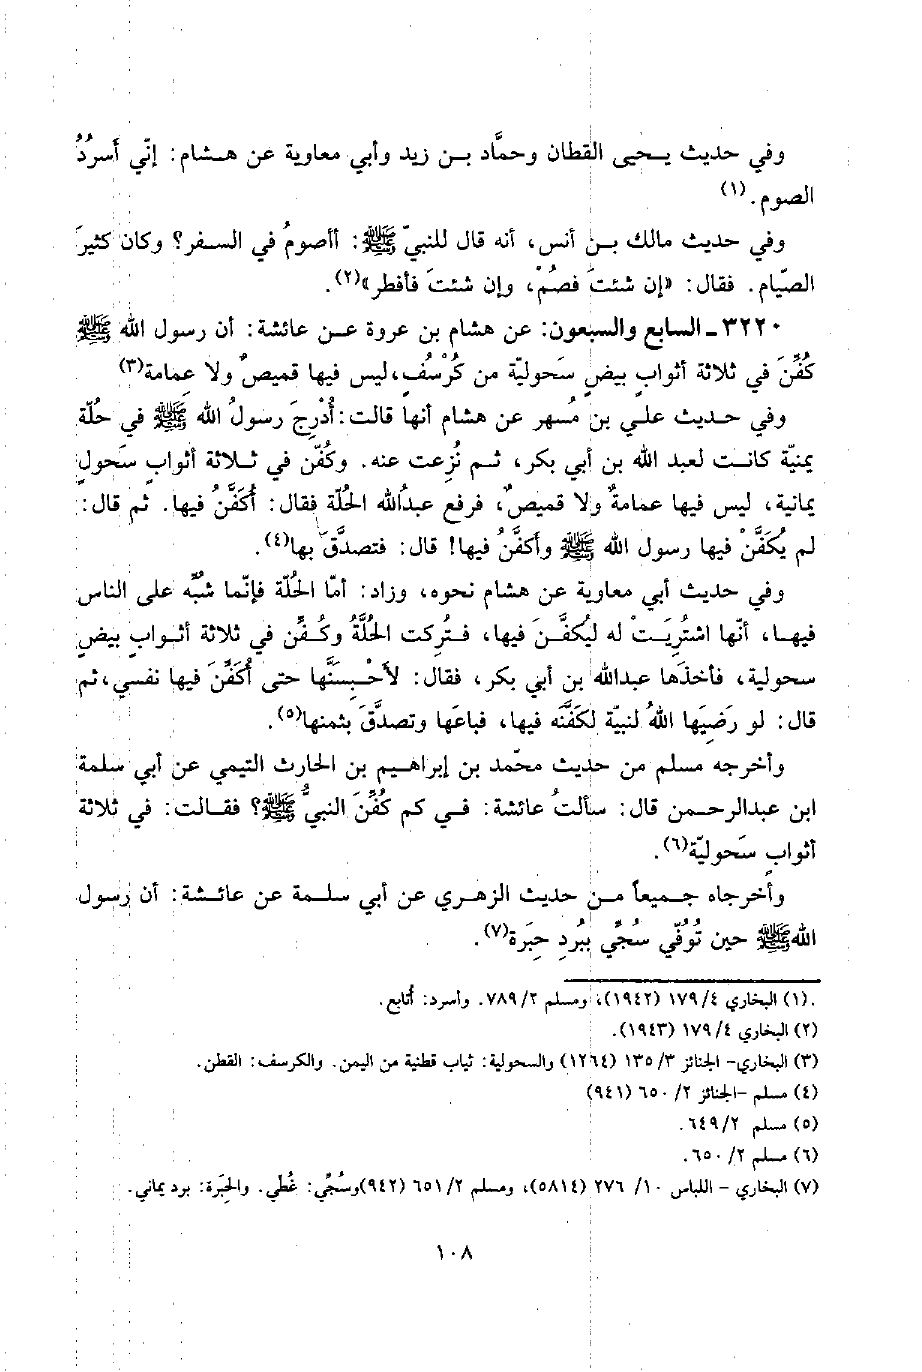 وفي حديث يـحيى القطان وحمَّاد بـن زيد وأبي معاوية عن هـشام: إنّي أَسرُدُ
الصوم.(١)
وفي حديث مالك بـن أنس، أنه قال للنبيّ ﷺ: أأصومُ في السـفر؟ وكان كثيرَ
الصّيام. فقال: «إن شئتَ فصُمْ، وإن شئتَ فأفطر»(٢).
٣٢٢٠ـ السابع والسبعون: عن هشام بن عروة عـن عائشة: أن رسول الله ﷺ
كُفِّنَ في ثلاثة أثوابٍ بيضٍ سَحوليّة من كُرْسُفٍ،ليس فيها قميصٌ ولا عمامة(٣)
وفي حـديث علـي بن مُسهر عن هشام أنها قالت:أُدْرِجَ رسولُ الله ﷺ في حُلّة
يمنيّة كانـت لعبد الله بن أبي بكر، ثـم نُزِعت عنه. وكُفّن في ثـلاثة أثوابٍ سَحولٍ
يمانية، ليس فيها عمامةٌ ولا قميصٌ، فرفع عبدُالله الحُلّة فقال: أُكَفَّنُ فيها. ثم قال:
لم يُكَفَّنْ فيها رسول الله ﷺ وأكفَّنُ فيها! قال: فتصدَّقَ بها(٤).
وفي حديث أبي معاوية عن هشام نحوه، وزاد: أمّا الحُلّة فإنّما شُبّه على الناس
فيهـا، أنّها اشتُرِيَـتْ له ليُكفَّـنَ فيها، فـتُركت الحُلَّةُ وكُـفِّن في ثلاثة أثـوابٍ بيضٍ
سحولية، فأخذَها عبدالله بن أبي بكر، فقال: لأحْـبِسنَّها حتى أُكَفِّنَ فيها نفسي،ثم
قال: لو رَضِيَها اللهُ لنبيّة لكَفَّنَه فيها، فباعَها وتصدَّقَ بثمنها(٥).
وأخرجه مسلم من حديث محمّد بن إبراهيم بن الحارث التيمي عن أبي سلمة
ابن عبدالرحـمن قال: سألتُ عائشة: فـي كم كُفِّنَ النبيُّ ﷺ؟ فقـالت: في ثلاثة
أثوابٍ سَحوليّة(٦).
وأخرجاه جـميعاً مـن حديث الزهـري عن أبي سلـمة عن عائـشة: أن رسول
اللهﷺ حين تُوُفّي سُجِّي ببُردِ حِبَرة(٧).
.(١) البخاري ٤/ ١٧٩ (١٩٤٢)، ومسلم ٢/ ٧٨٩. وأسرد: أُتابع.
(٢) البخاري ٤/ ١٧٩ (١٩٤٣).
(٣) البخاري- الجنائز ٣/ ١٣٥ (١٢٦٤) والسحولية: ثياب قطنية من اليمن. والكرسف: القطن.
(٤) مسلم -الجنائز ٢/ ٦٥٠ (٩٤١)
(٥) مسلم ٢/ ٦٤٩.
(٦) مسلم ٢/ ٦٥٠.
(٧) البخاري - اللباس ١٠/ ٢٧٦ (٥٨١٤)، ومسلم ٢/ ٦٥١ (٩٤٢)وسُجِّي: غُطي. والحِبَرة: برد يماني.
١٠٨